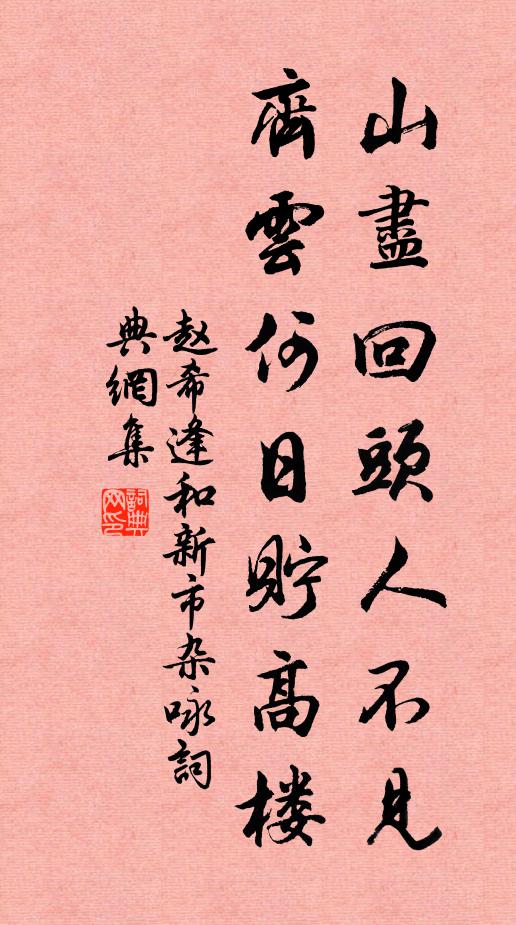 山盡回頭人不見
齊雲何日貯高楼
赵希逢和新市杂咏詞
典網集
詞典
网印